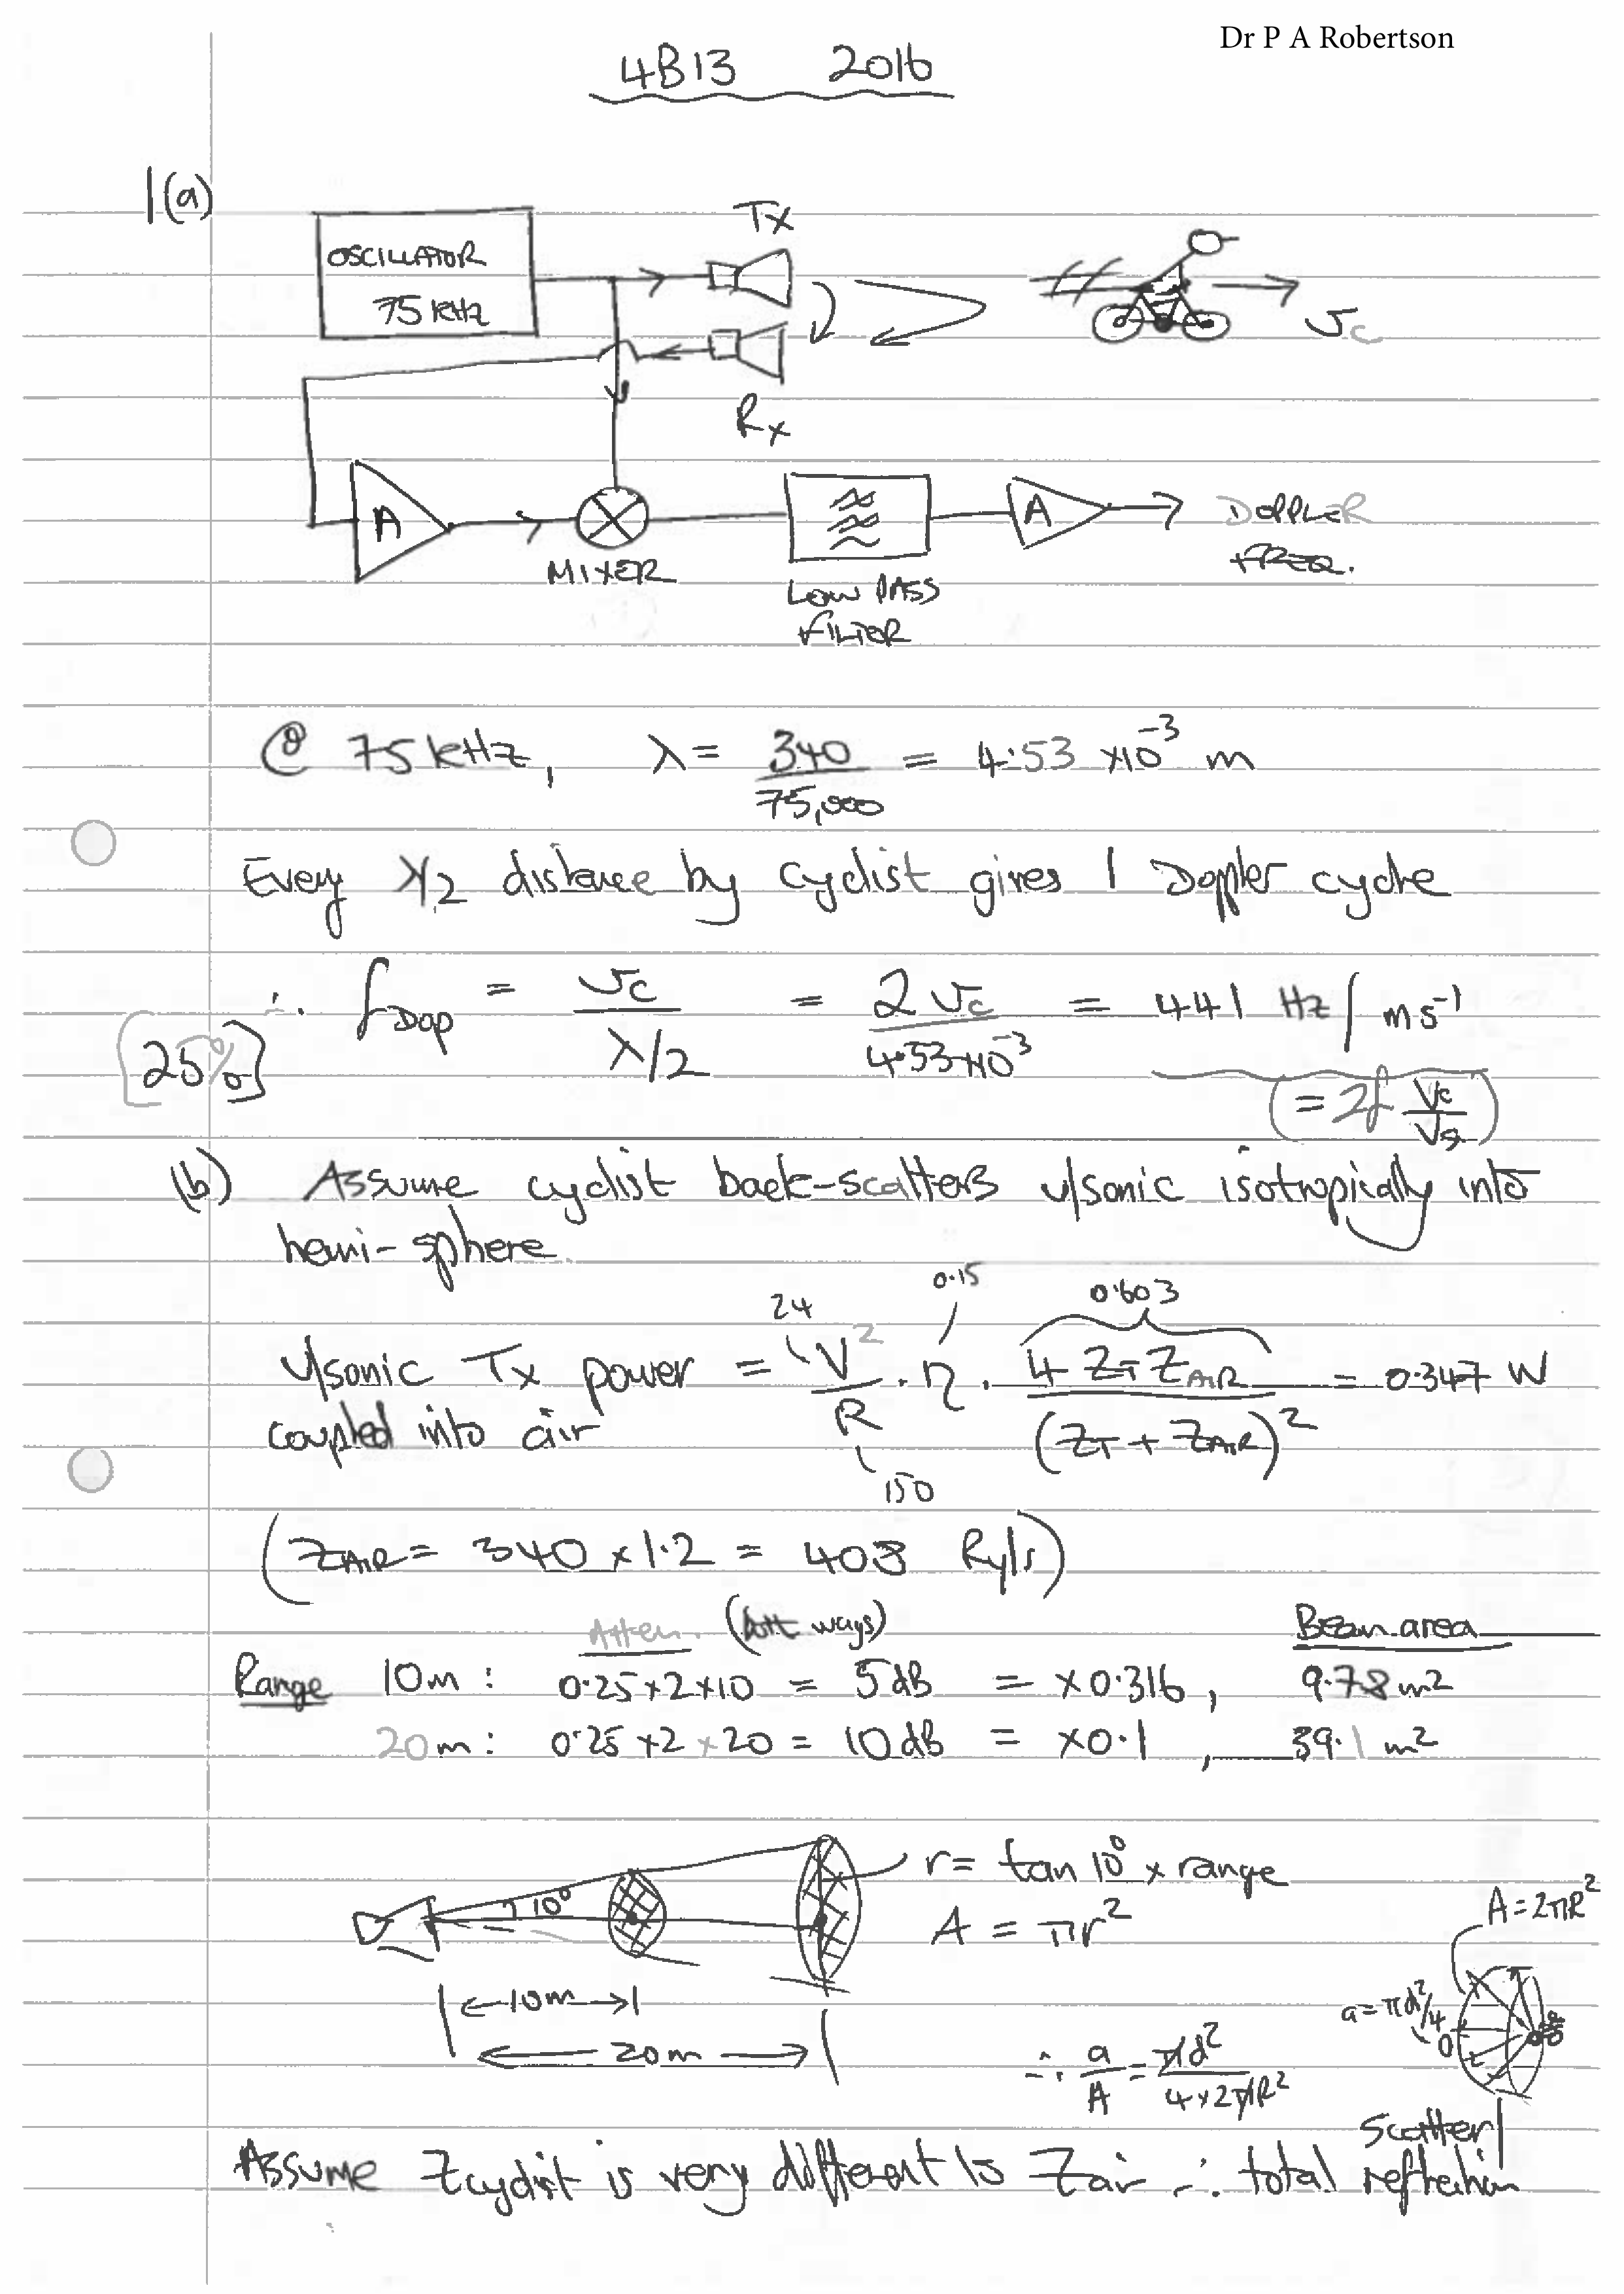 Dr P A Robertson
4B13 2016
1(a)
OSCILLATOR
75 kHz
Tx
Rx
v_c
A
MIXER
LOW PASS
FILTER
A
DOPPLER
FREQ.
@ 75 kHz, λ = 340/75,000 = 4.53 ×10⁻³ m
Every λ/2 distance by cyclist gives 1 Doppler cycle
∴ f_Dop = v_c/(λ/2) = 2v_c/(4.53×10⁻³) = 441 Hz / ms⁻¹
[25%]
(= 2f v_c/v_s)
(b) Assume cyclist back-scatters u/sonic isotropically into
hemi-sphere.
24 0.15 0.603
u/sonic Tx power = V²/R · η · 4 Z_T Z_AIR/(Z_T + Z_AIR)² = 0.347 W
coupled into air
150
(Z_AIR = 340 × 1.2 = 408 Ryls)
Atten. (both ways) Beam area
Range 10m : 0.25×2×10 = 5 dB = ×0.316, 9.78 m²
20m : 0.25×2×20 = 10 dB = ×0.1, 39.1 m²
10°
r = tan 10° × range
A = πr²
A = 2πR²
←10m→
←20m→
a = πd²/4
∴ a/A = πd²/(4×2πR²)
Scatter
Assume Zcyclist is very different to Zair ∴ total reflection